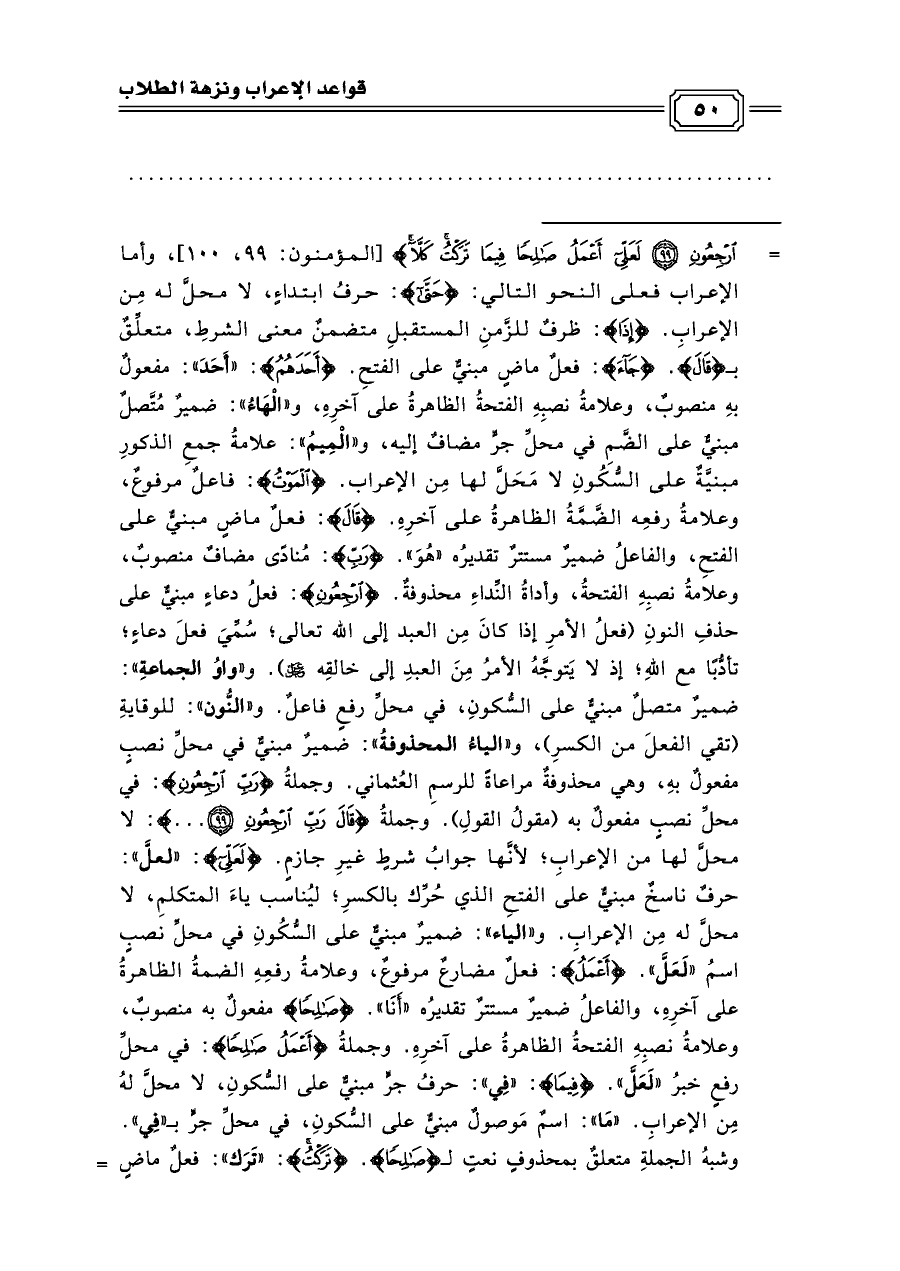 قواعد الإعراب ونزهة الطلاب
٥٠
................................................................
= ٱرْجِعُونِ ۝٩٩ لَعَلِّيٓ أَعْمَلُ صَٰلِحًا فِيمَا تَرَكْتُۚ كَلَّآۚ﴾ [المؤمنون: ٩٩، ١٠٠]، وأما
الإعراب فعلى النحو التالي: ﴿حَتَّىٰٓ﴾: حرفُ ابتداءٍ، لا محلَّ له مِن
الإعرابِ. ﴿إِذَا﴾: ظرفٌ للزَّمنِ المستقبلِ متضمنٌ معنى الشرطِ، متعلِّقٌ
بـ﴿قَالَ﴾. ﴿جَآءَ﴾: فعلٌ ماضٍ مبنيٌّ على الفتحِ. ﴿أَحَدَهُمُ﴾: «أَحَدَ»: مفعولٌ
بهِ منصوبٌ، وعلامةُ نصبِهِ الفتحةُ الظاهرةُ على آخرِهِ، و«الْهَاءُ»: ضميرٌ مُتَّصلٌ
مبنيٌّ على الضَّمِ في محلِّ جرٍّ مضافٌ إليه، و«الْمِيمُ»: علامةُ جمعِ الذكورِ
مبنيَّةٌ على السُّكُونِ لا مَحَلَّ لها مِن الإعراب. ﴿ٱلْمَوْتُ﴾: فاعلٌ مرفوعٌ،
وعلامةُ رفعِه الضَّمَّةُ الظاهرةُ على آخرِهِ. ﴿قَالَ﴾: فعلٌ ماضٍ مبنيٌّ على
الفتحِ، والفاعلُ ضميرٌ مستترٌ تقديرُه «هُوَ». ﴿رَبِّ﴾: مُنادًى مضافٌ منصوبٌ،
وعلامةُ نصبِهِ الفتحةُ، وأداةُ النِّداءِ محذوفةٌ. ﴿ٱرْجِعُونِ﴾: فعلُ دعاءٍ مبنيٌّ على
حذفِ النونِ (فعلُ الأمرِ إذا كانَ مِن العبد إلى الله تعالى؛ سُمِّيَ فعلَ دعاءٍ؛
تأدُّبًا مع اللهِ؛ إذ لا يَتوجَّهُ الأمرُ مِنَ العبدِ إلى خالقِه ﷻ). و«واوُ الجماعةِ»:
ضميرٌ متصلٌ مبنيٌّ على السُّكونِ، في محلِّ رفعٍ فاعلٌ. و«النُّون»: للوقايةِ
(تقي الفعلَ من الكسرِ)، و«الياءُ المحذوفةُ»: ضميرٌ مبنيٌّ في محلِّ نصبٍ
مفعولٌ بهِ، وهي محذوفةٌ مراعاةً للرسمِ العُثماني. وجملةُ ﴿رَبِّ ٱرْجِعُونِ﴾: في
محلِّ نصبٍ مفعولٌ به (مقولُ القولِ). وجملةُ ﴿قَالَ رَبِّ ٱرْجِعُونِ ۝٩٩...﴾: لا
محلَّ لها من الإعرابِ؛ لأنَّها جوابُ شرطٍ غيرِ جازمٍ. ﴿لَعَلِّيٓ﴾: «لعلَّ»:
حرفٌ ناسخٌ مبنيٌّ على الفتحِ الذي حُرِّك بالكسرِ؛ ليُناسب ياءَ المتكلمِ، لا
محلَّ له مِن الإعرابِ. و«الياء»: ضميرٌ مبنيٌّ على السُّكُونِ في محلِّ نصبٍ
اسمُ «لَعَلَّ». ﴿أَعْمَلُ﴾: فعلٌ مضارعٌ مرفوعٌ، وعلامةُ رفعِهِ الضمةُ الظاهرةُ
على آخرِهِ، والفاعلُ ضميرٌ مستترٌ تقديرُه «أَنَا». ﴿صَٰلِحًا﴾ مفعولٌ به منصوبٌ،
وعلامةُ نصبِهِ الفتحةُ الظاهرةُ على آخرِهِ. وجملةُ ﴿أَعْمَلُ صَٰلِحًا﴾: في محلِّ
رفعٍ خبرُ «لَعَلَّ». ﴿فِيمَا﴾: «فِي»: حرفُ جرٍّ مبنيٌّ على السُّكونِ، لا محلَّ لهُ
مِن الإعرابِ. «مَا»: اسمٌ مَوصولٌ مبنيٌّ على السُّكونِ، في محلِّ جرٍّ بـ«فِي».
وشبهُ الجملةِ متعلقٌ بمحذوفٍ نعتٍ لـ﴿صَٰلِحًا﴾. ﴿تَرَكْتُۚ﴾: «تَرَك»: فعلٌ ماضٍ =